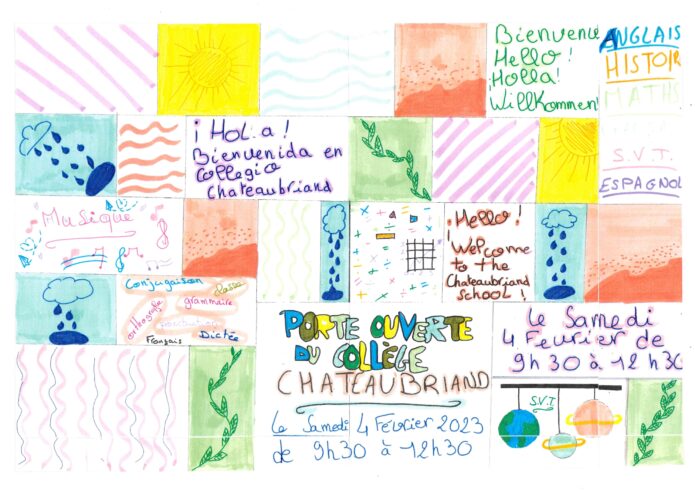 Bienvenue
Hello!
¡Holla!
Willkommen!
ANGLAIS
HISTOIR
MATHS
S.V.T.
ESPAGNOL
¡Hola!
Bienvenida en
Collegio
Chateaubriand
Musique
Hello!
Welcome
to the
Chateaubriand
School!
Conjugaison
classe
orthografie
grammaire
Français
Dictée
PORTE OUVERTE
DU COLLÈGE
CHATEAUBRIAND
Le Samedi 4 Février 2023
de 9h30 à 12h30
Le Samedi
4 Fevrier de
9h30 à 12h30
S.V.T.